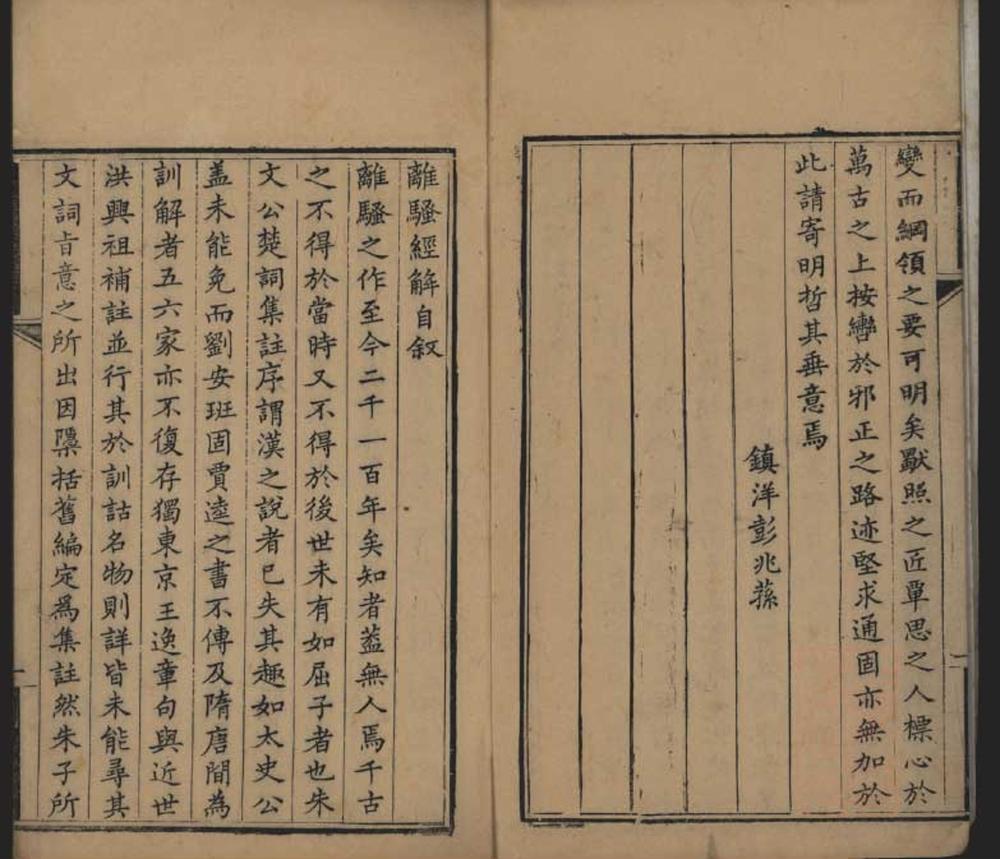 變而綱領之要可明矣歐照之匠覃思之人標心於
萬古之上按轡於邪正之路迹堅求通固亦無加於
此請寄明哲其垂意焉
鎮洋彭兆蓀
離騷經解自叙
離騷之作至今二千一百年矣知者葢無人焉千古
之不得於當時又不得於後世未有如屈子者也朱
文公楚詞集註序謂漢之說者已失其趣如太史公
盖未能免而劉安班固賈逵之書不傳及隋唐間為
訓解者五六家亦不復存獨東京王逸章句與近世
洪興祖補註並行其於訓詁名物則詳皆未能尋其
文詞㫖意之所出因檃括舊編定為集註然朱子所